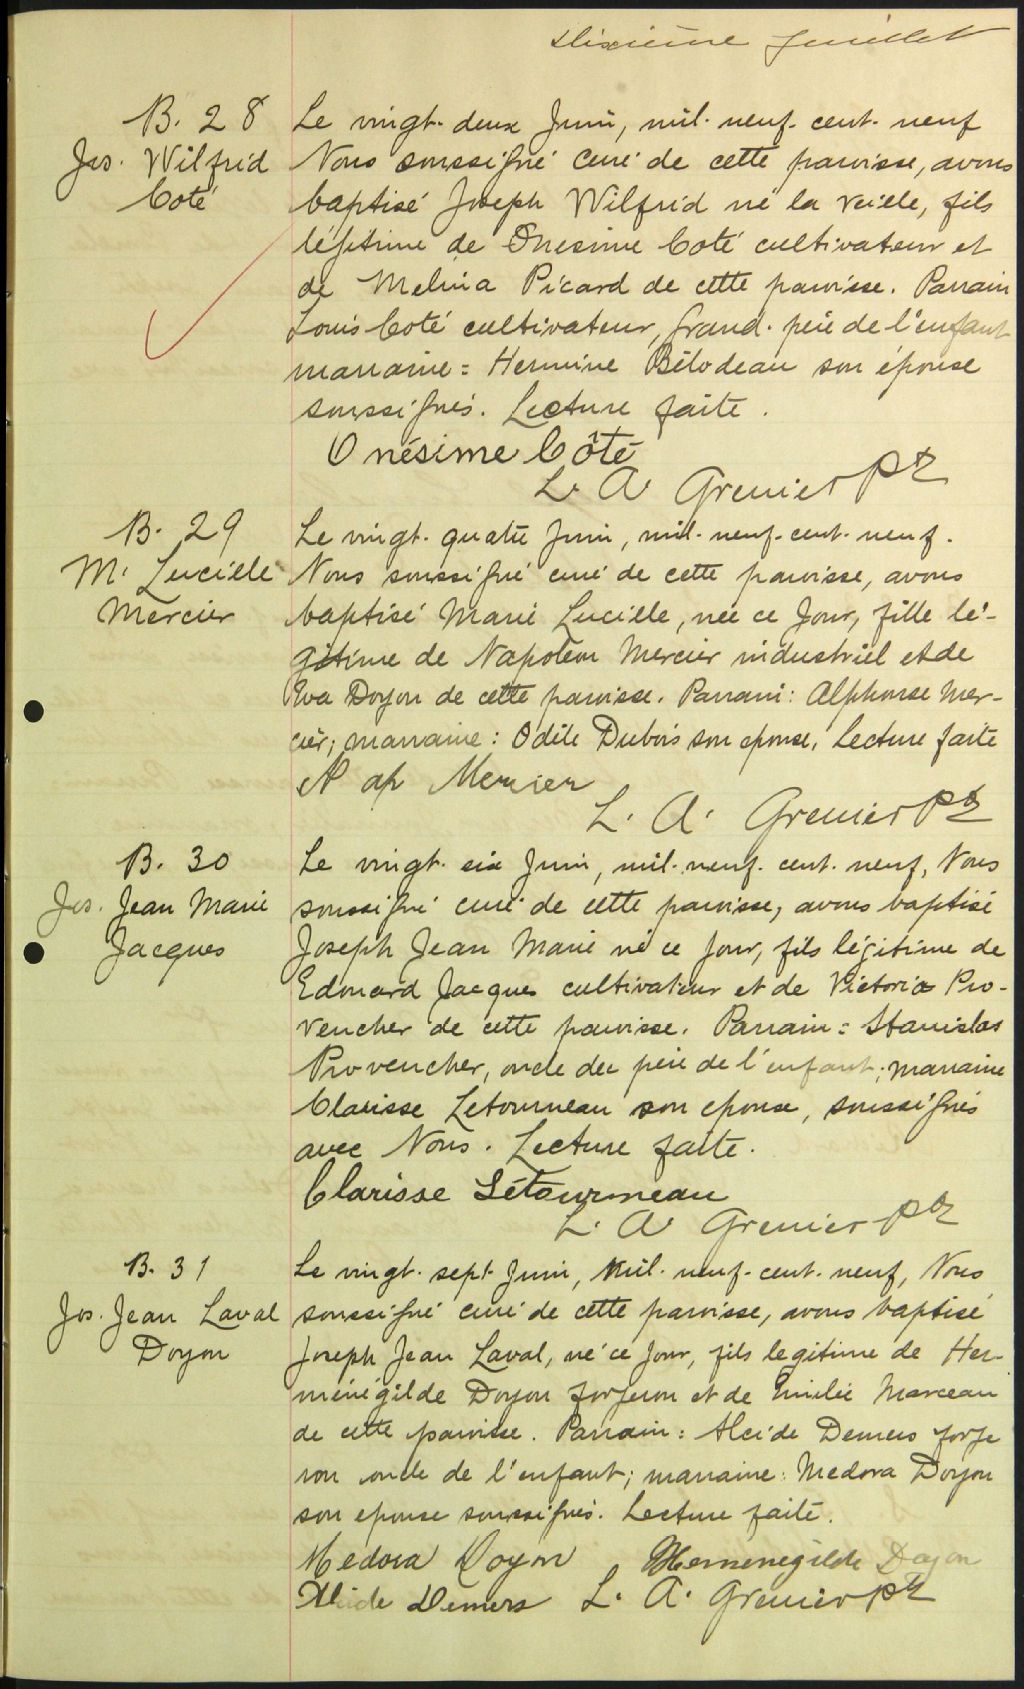 dixième Juillet
B. 28
Jos. Wilfrid
Coté
Le vingt-deux Juin, mil-neuf-cent-neuf
Nous soussigné curé de cette paroisse, avons
baptisé Joseph Wilfrid né la veille, fils
légitime de Onesime Coté cultivateur et
de Melina Picard de cette paroisse. Parrain
Louis Coté cultivateur, grand-père de l'enfant
marraine = Hermine Bilodeau son épouse
soussignés. Lecture faite.
Onésime Côté
L. A. Grenier Ptr
B. 29
M. Lucille
Mercier
Le vingt-quatre Juin, mil-neuf-cent-neuf.
Nous soussigné curé de cette paroisse, avons
baptisé Marie Lucille, née ce Jour, fille lé-
gitime de Napoléon Mercier industriel et de
Eva Doyon de cette paroisse. Parrain: Alphonse Mer-
cier; marraine: Odile Dubois son epouse. Lecture faite
Nap Mercier
L. A. Grenier Ptr
B. 30
Jos. Jean Marie
Jacques
Le vingt-six Juin, mil-neuf-cent-neuf, Nous
soussigné curé de cette paroisse, avons baptisé
Joseph Jean Marie né ce Jour, fils légitime de
Edouard Jacques cultivateur et de Victoria Pro-
vencher de cette paroisse. Parrain = Stanislas
Provencher, oncle du père de l'enfant; marraine
Clarisse Letourneau son epouse, soussignés
avec Nous. Lecture faite.
Clarisse Létourneau
L. A. Grenier Ptr
B. 31
Jos. Jean Laval
Doyon
Le vingt-sept Juin, mil-neuf-cent-neuf, Nous
soussigné curé de cette paroisse, avons baptisé
Joseph Jean Laval, né ce Jour, fils legitime de Her-
ménégilde Doyon forgeron et de Emilie Marceau
de cette paroisse. Parrain: Alcide Demers forge
ron oncle de l'enfant; marraine: Medora Doyon
son epouse soussignés. Lecture faite.
Medora Doyon Hermenegilde Doyon
Alcide Demers L. A. Grenier Ptr